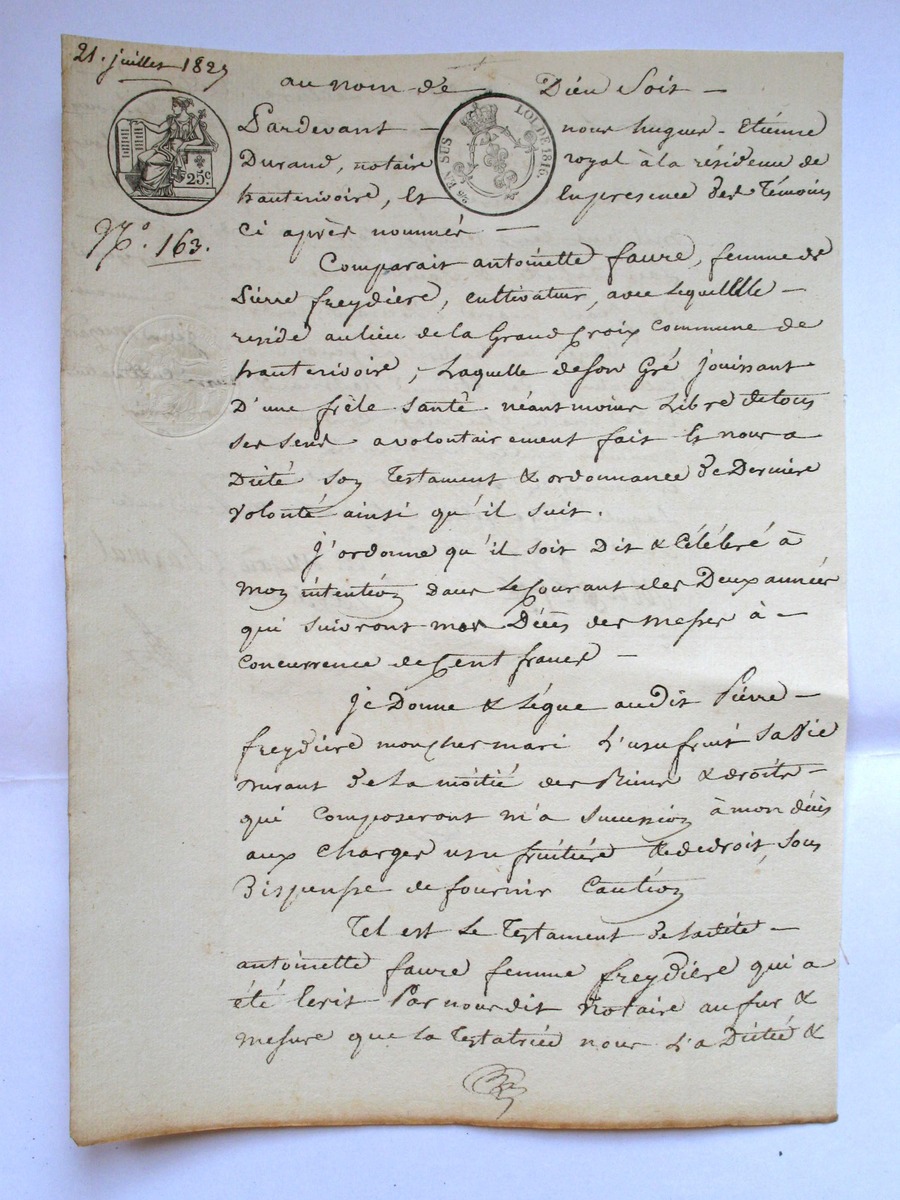 21. juillet 1825
au nom de Dieu Soit —
Pardevant — nous hugues - Etienne
Durand, notaire royal à la résidence de
hauterivoire, Et En presence des Témoins
Ci après nommés —
25 EN SUS
LOI DE 1816.
25c.
No. 163.
Comparait antoinette faure, femme de
Pierre freydière, cultivateur, avec Lequel Elle —
reside au lieu de la Grand Croix commune de
hauterivoire, Laquelle de son Gré jouissant
D'une frêle santé néantmoins Libre de tous
ses sens a volontairement fait Et nous a
Dicté son Testament & ordonnance de Derniere
volonté ainsi qu'il suit.
J'ordonne qu'il soit Dit & Célébré à
mon intention dans Le Courant des Deux années
qui suivront mon Décès des messes à —
Concurrence de Cent francs —
Je Donne & Lègue audit Pierre —
freydière mon cher mari L'usufruit sa Vie
Durant de la moitié des Biens & droits —
qui Composeront m'a Succession à mon décès
aux Charges usufruitière & de droit, sous
Dispense de fournir Caution
Tel est Le Testament de Ladite —
antoinette faure femme freydière qui a
été Ecrit Par nous dit Notaire au fur &
mesure que La Testatrice nous L'a Dicté &